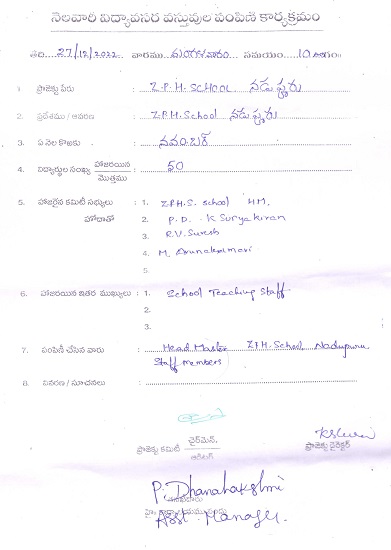 నెలవారి విద్యావసర వస్తువుల పంపిణీ కార్యక్రమం
తేది 27/12/2022 వారము మంగళవారం సమయం 10
1. ప్రాజెక్టు పేరు : Z.P.H. SCHOOL నడుపూరు
2. ప్రదేశము / ఆవరణ : Z.P.H. School నడుపూరు
3. ఏ నెల కొఱకు : నవంబర్
4. విద్యార్థుల సంఖ్య హాజరయిన / మొత్తము : 50
5. హాజరైన కమిటీ సభ్యులు : 1. Z.P.H.S. School HM.
హోదాతో 2. P.D. - K Suryakiran
3. R.V. Suresh
4. M. Arunakumari
5.
6. హాజరయిన ఇతర ముఖ్యులు : 1. School Teaching Staff
2.
3.
7. పంపిణీ చేసిన వారు : Head Master Z.P.H. School, Nadupuru
Staff members
8. వివరణ / సూచనలు :
ప్రాజెక్టు కమిటీ చైర్‌మెన్ / ఆక్టింగ్ ప్రాజెక్టు డైరెక్టర్
P. Dhanalakshmi
Asst Manager.